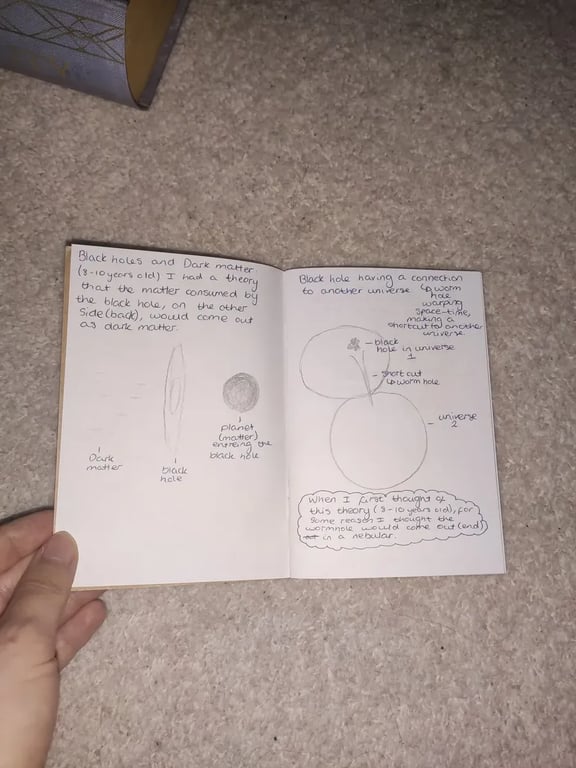 Black holes and Dark matter
(8-10 years old) I had a theory
that the matter consumed by
the black hole, on the other
side (back), would come out
as dark matter.
Dark
matter
black
hole
planet
(matter)
entreing the
black hole
Black hole having a connection
to another universe
↳ worm
hole
warping
space-time,
making a
shortcut to another
universe.
black
hole in universe
1
short cut
↳ worm hole
universe
2
When I first thought of
this theory (8-10 years old), for
some reason I thought the
wormhole would come out (end)
in a nebular.